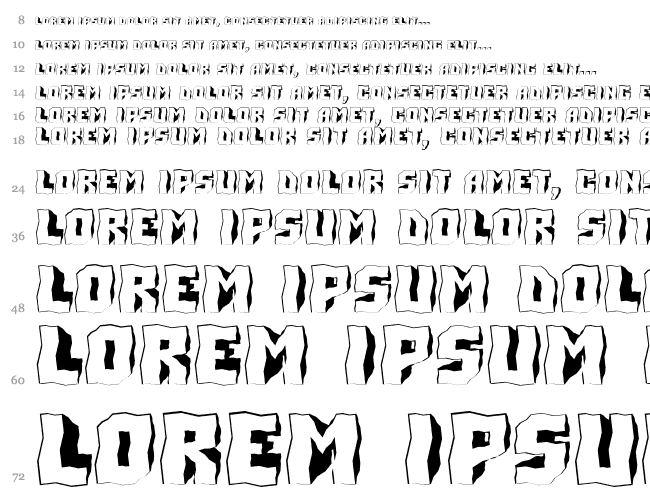 8 LOREM IPSUM DOLOR SIT AMET, CONSECTETUER ADIPISCING ELIT...
10 LOREM IPSUM DOLOR SIT AMET, CONSECTETUER ADIPISCING ELIT...
12 LOREM IPSUM DOLOR SIT AMET, CONSECTETUER ADIPISCING ELIT...
14 LOREM IPSUM DOLOR SIT AMET, CONSECTETUER ADIPISCING E
16 LOREM IPSUM DOLOR SIT AMET, CONSECTETUER ADIPISC
18 LOREM IPSUM DOLOR SIT AMET, CONSECTETUER A
24 LOREM IPSUM DOLOR SIT AMET, CONS
36 LOREM IPSUM DOLOR SIT
48 LOREM IPSUM DOL
60 LOREM IPSUM
72 LOREM IPSU